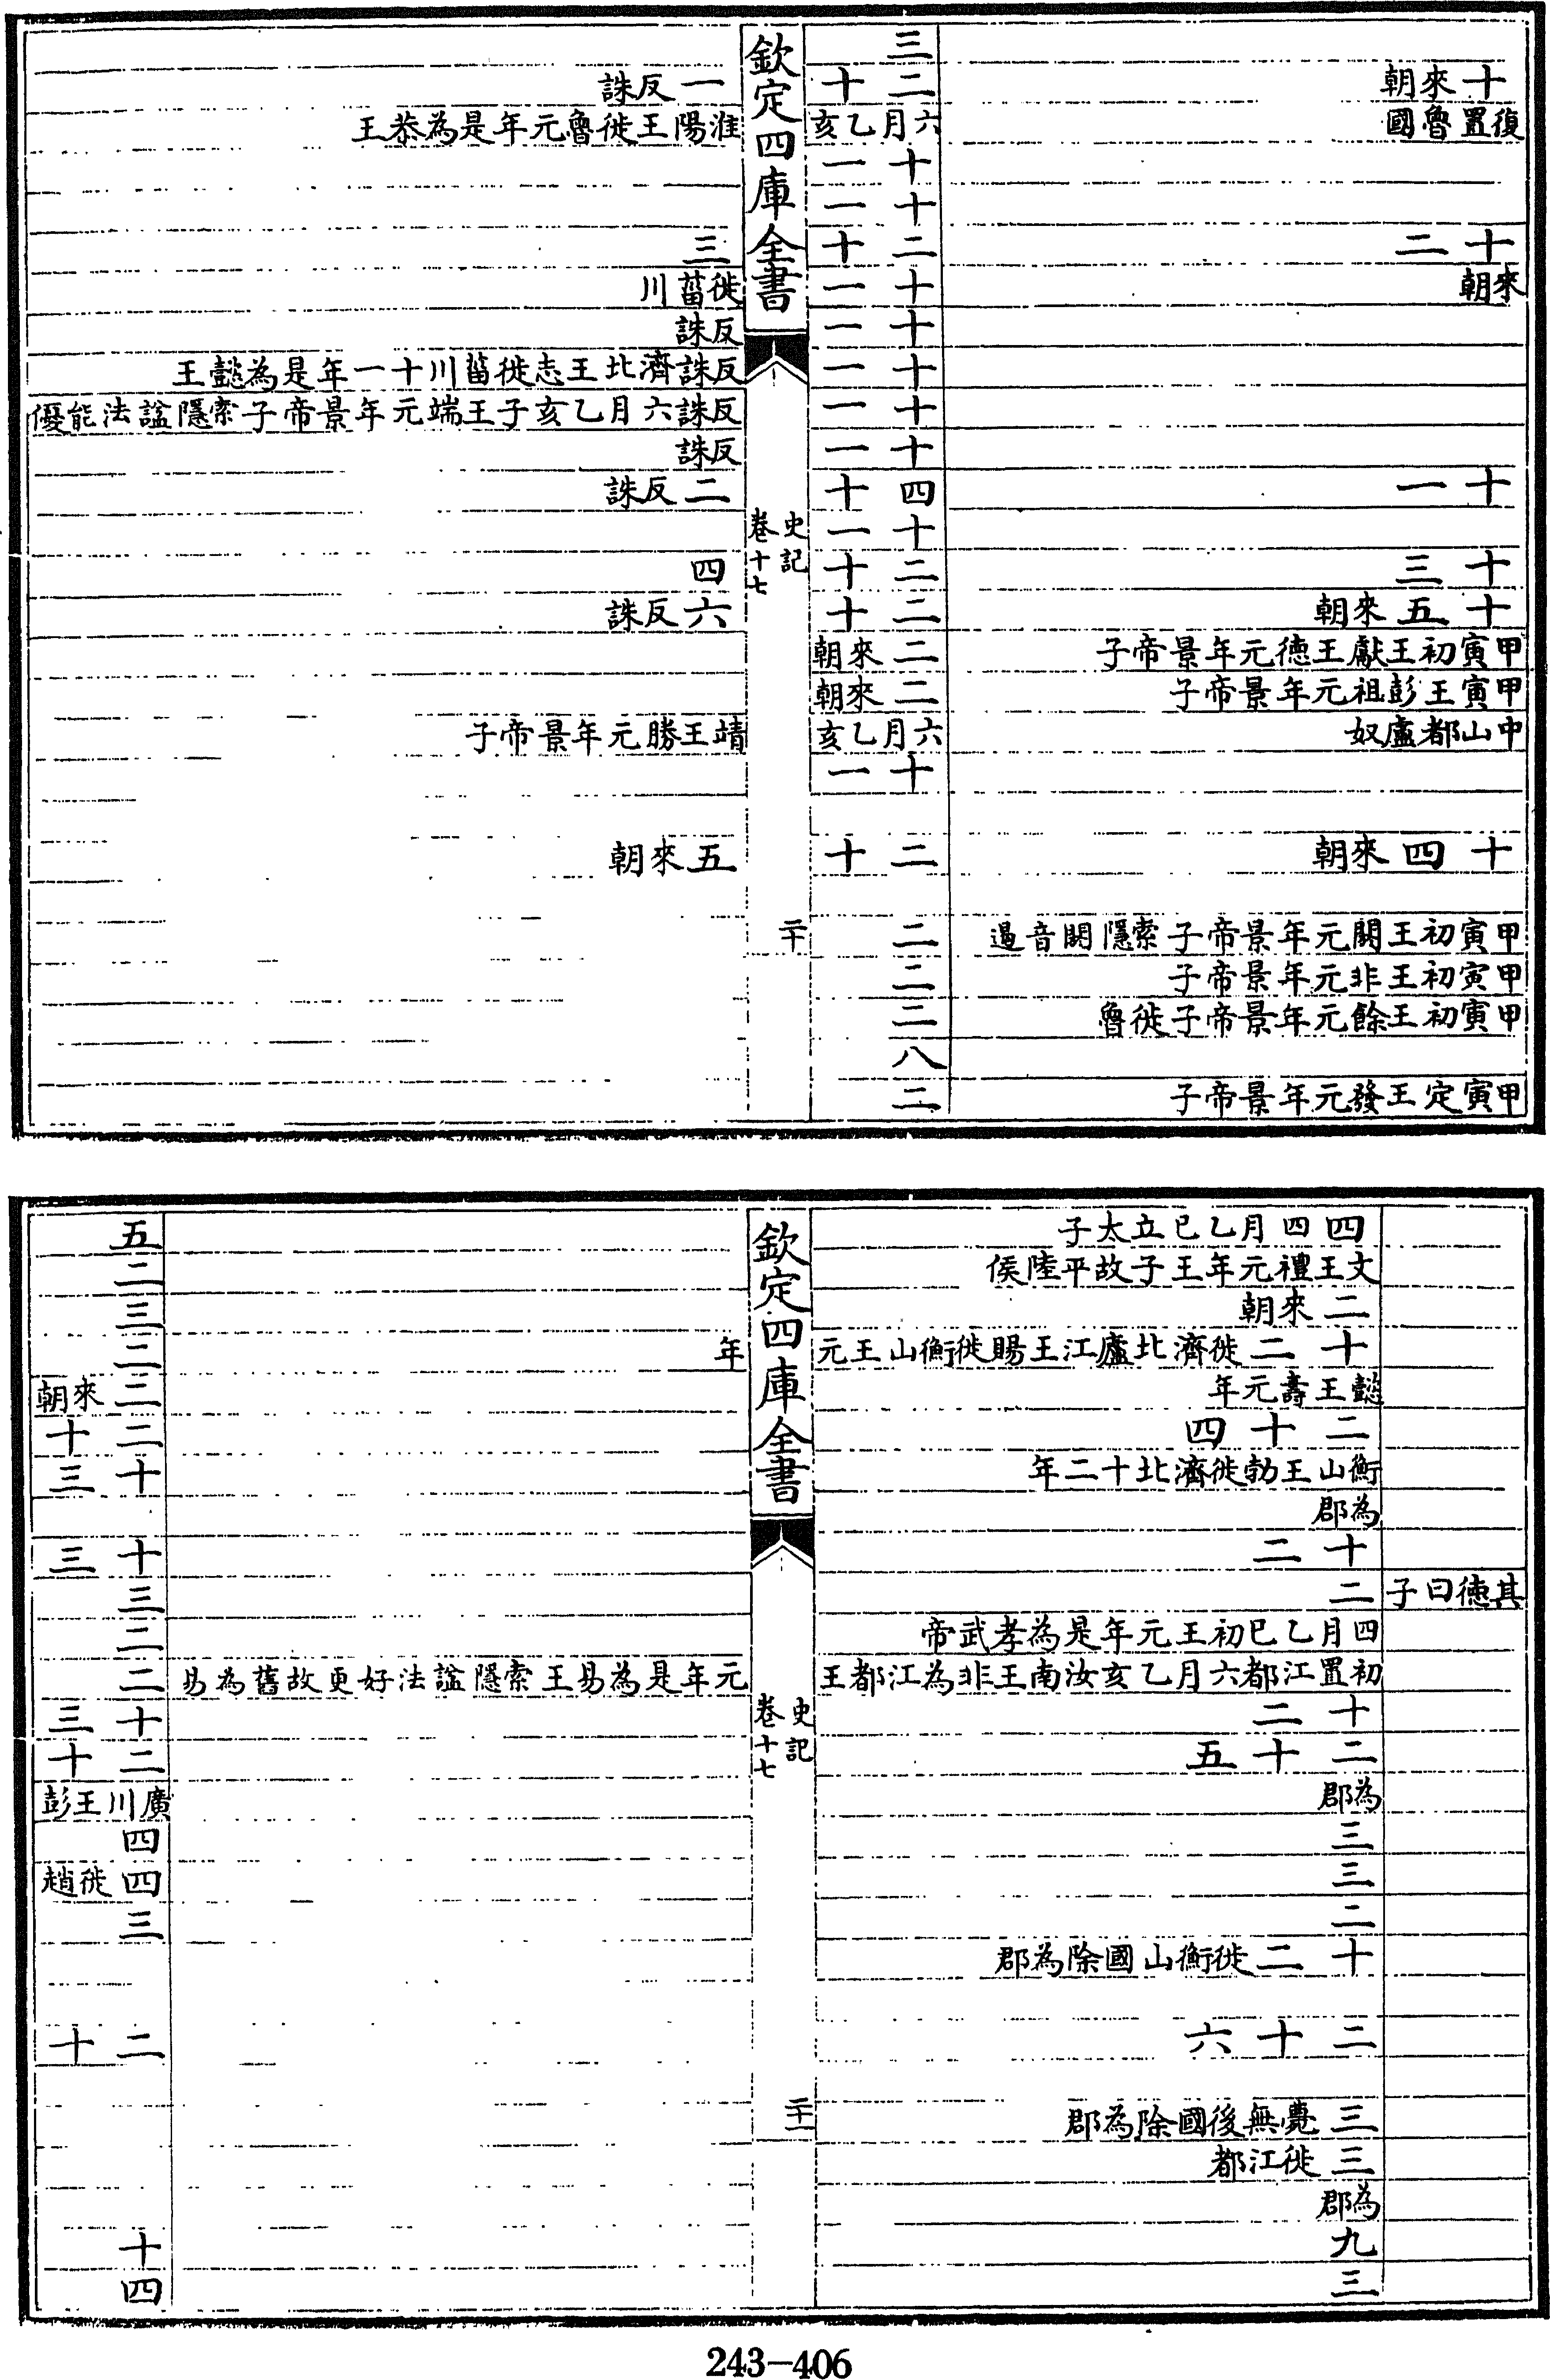 十來朝
復置魯國
十二
來朝
十一
十三
十五來朝
甲寅初王獻王德元年景帝子
甲寅王彭祖元年景帝子
中山都盧奴
十四來朝
甲寅初王閼元年景帝子索隱閼音遏
甲寅初王非元年景帝子
甲寅初王餘元年景帝子徙魯
甲寅定王發元年景帝子
三
二十
六月乙亥
十一
十一
二十
十一
十一
十一
十一
十一
四十
十一
二十
二十
二來朝
二來朝
六月乙亥
十一
二十
二
二
二
八
二
欽定四庫全書
史記
卷十七
二十
一反誅
淮陽王徙魯元年是為恭王
三
徙菑川
反誅
反誅濟北王志徙菑川十一年是為懿王
反誅六月乙亥子王端元年景帝子索隱諡法能優
反誅
二反誅
四
六反誅
靖王勝元年景帝子
五來朝
其德曰子
四四月乙巳立太子
文王禮元年王子故平陸侯
二來朝
十二徙濟北廬江王賜徙衡山王元
懿王壽元年
二十四
衡山王勃徙濟北十二年
為郡
十二
二
四月乙巳初王元年是為孝武帝
初置江都六月乙亥汝南王非為江都王
十二
二十五
為郡
三
三
二
十二徙衡山國除為郡
二十六
三薨無後國除為郡
三徙江都
為郡
九
三
欽定四庫全書
史記
卷十七
二十一
年
元年是為易王索隱諡法好更故舊為易
五
二
三
二
二來朝
二十
十三
十三
三
二
二
十三
二十
廣川王彭
四
四徙趙
三
二十
十
四
243-406